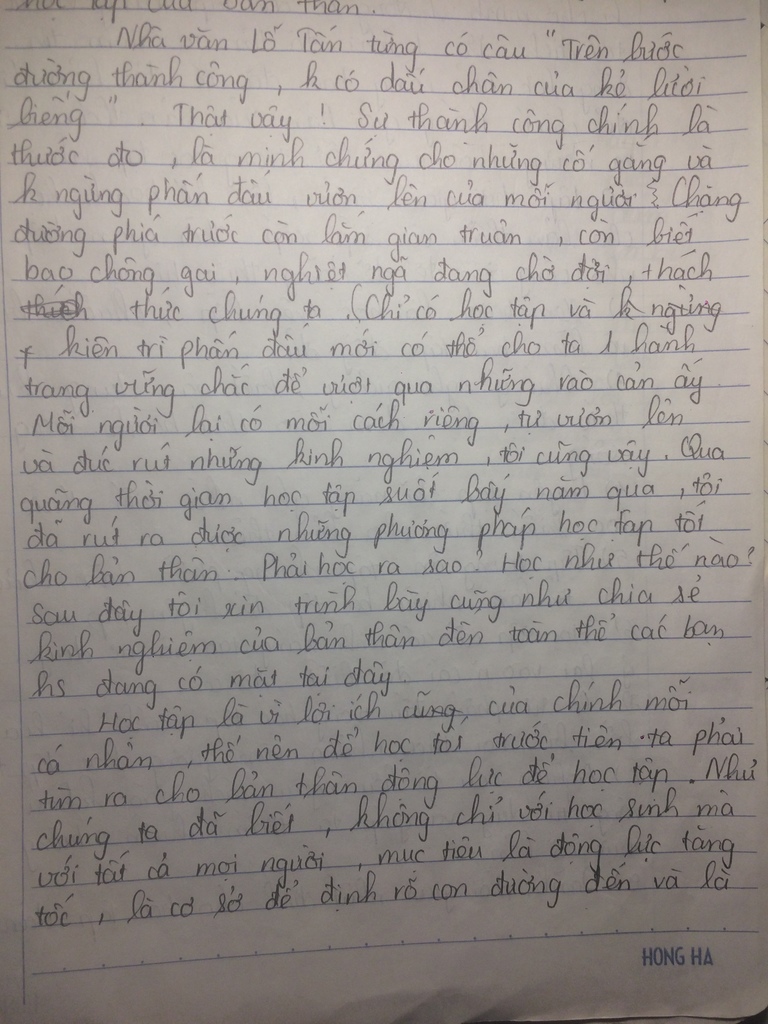 học tập của bản thân.
Nhà văn Lỗ Tấn từng có câu "Trên bước
đường thành công, k có dấu chân của kẻ lười
biếng". Thật vậy! Sự thành công chính là
thước đo, là minh chứng cho những cố gắng và
k ngừng phấn đấu vươn lên của mỗi người. Chặng
đường phía trước còn lắm gian truân, còn biết
bao chông gai, nghiệt ngã đang chờ đợi, thách
thức chúng ta. (Chỉ có học tập và k ngừng
+ kiên trì phấn đấu mới có thể cho ta 1 hành
trang vững chắc để vượt qua những rào cản ấy.
Mỗi người lại có mỗi cách riêng, tự vươn lên
và đúc rút những kinh nghiệm, tôi cũng vậy. Qua
quãng thời gian học tập suốt bấy năm qua, tôi
đã rút ra được những phương pháp học tập tốt
cho bản thân. Phải học ra sao? Học như thế nào?
Sau đây tôi xin trình bày cũng như chia sẻ
kinh nghiệm của bản thân đến toàn thể các bạn
hs đang có mặt tại đây.
Học tập là vì lợi ích cũng, của chính mỗi
cá nhân, thế nên để học tốt trước tiên ta phải
tìm ra cho bản thân động lực để học tập. Như
chúng ta đã biết, không chỉ với học sinh mà
với tất cả mọi người, mục tiêu là động lực tăng
tốc, là cơ sở để định rõ con đường đến và là
HONG HA